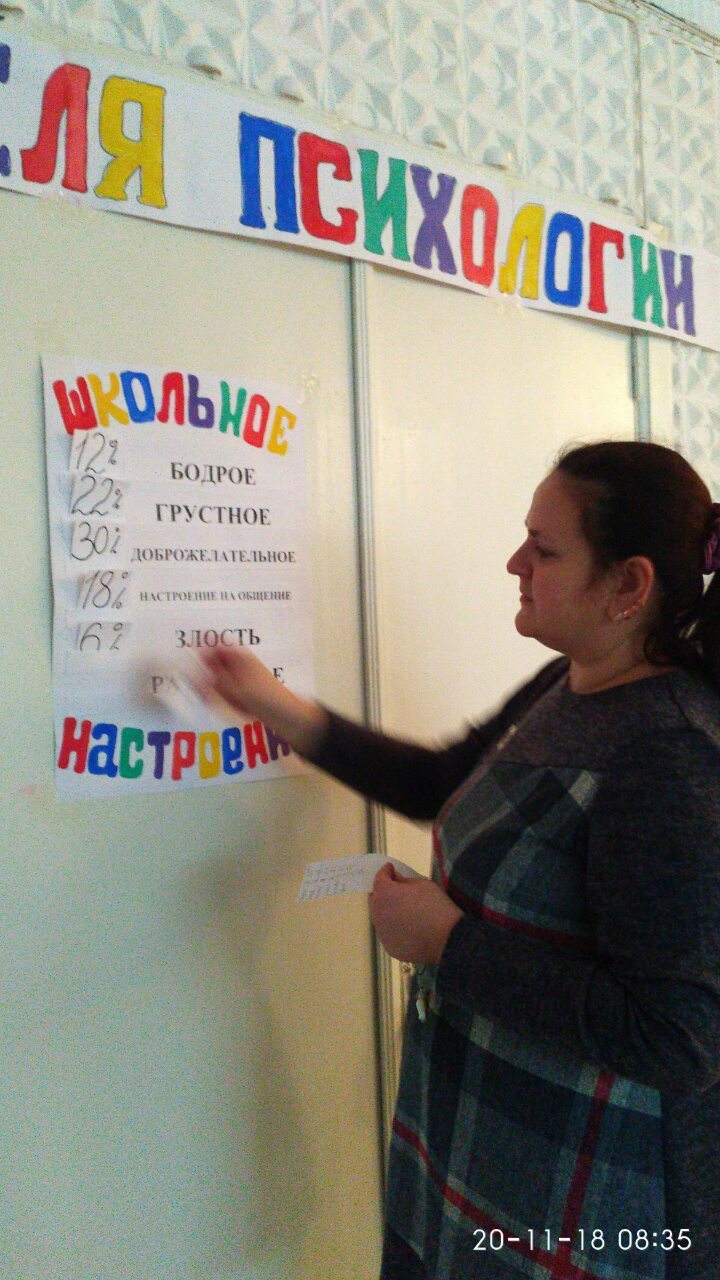 ЛЯ ПСИХОЛОГИИ
ШКОЛЬНОЕ
12% БОДРОЕ
22% ГРУСТНОЕ
30% ДОБРОЖЕЛАТЕЛЬНОЕ
18% НАСТРОЕНИЕ НА ОБЩЕНИЕ
16% ЗЛОСТЬ
НАСТРОЕНИ
20-11-18 08:35